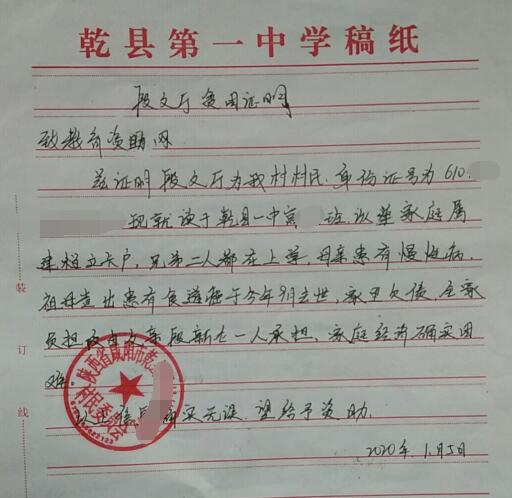 乾县第一中学稿纸
段文厅贫困证明
致教育资助网
兹证明段文厅为我村村民,身份证号为610
现就读于乾县一中高 班,该生家庭属
建档立卡户,兄弟二人都在上学,母亲患有慢性病,
祖母查出患有食道癌于今年9月去世,家里欠债,全家
负担 由其父亲段新 一人承担,家庭经济确实困
难。
以上 情况 属实无误,望给予资助。
2020年1月5日
陕西省咸阳市乾
村民委员会
装
订
线